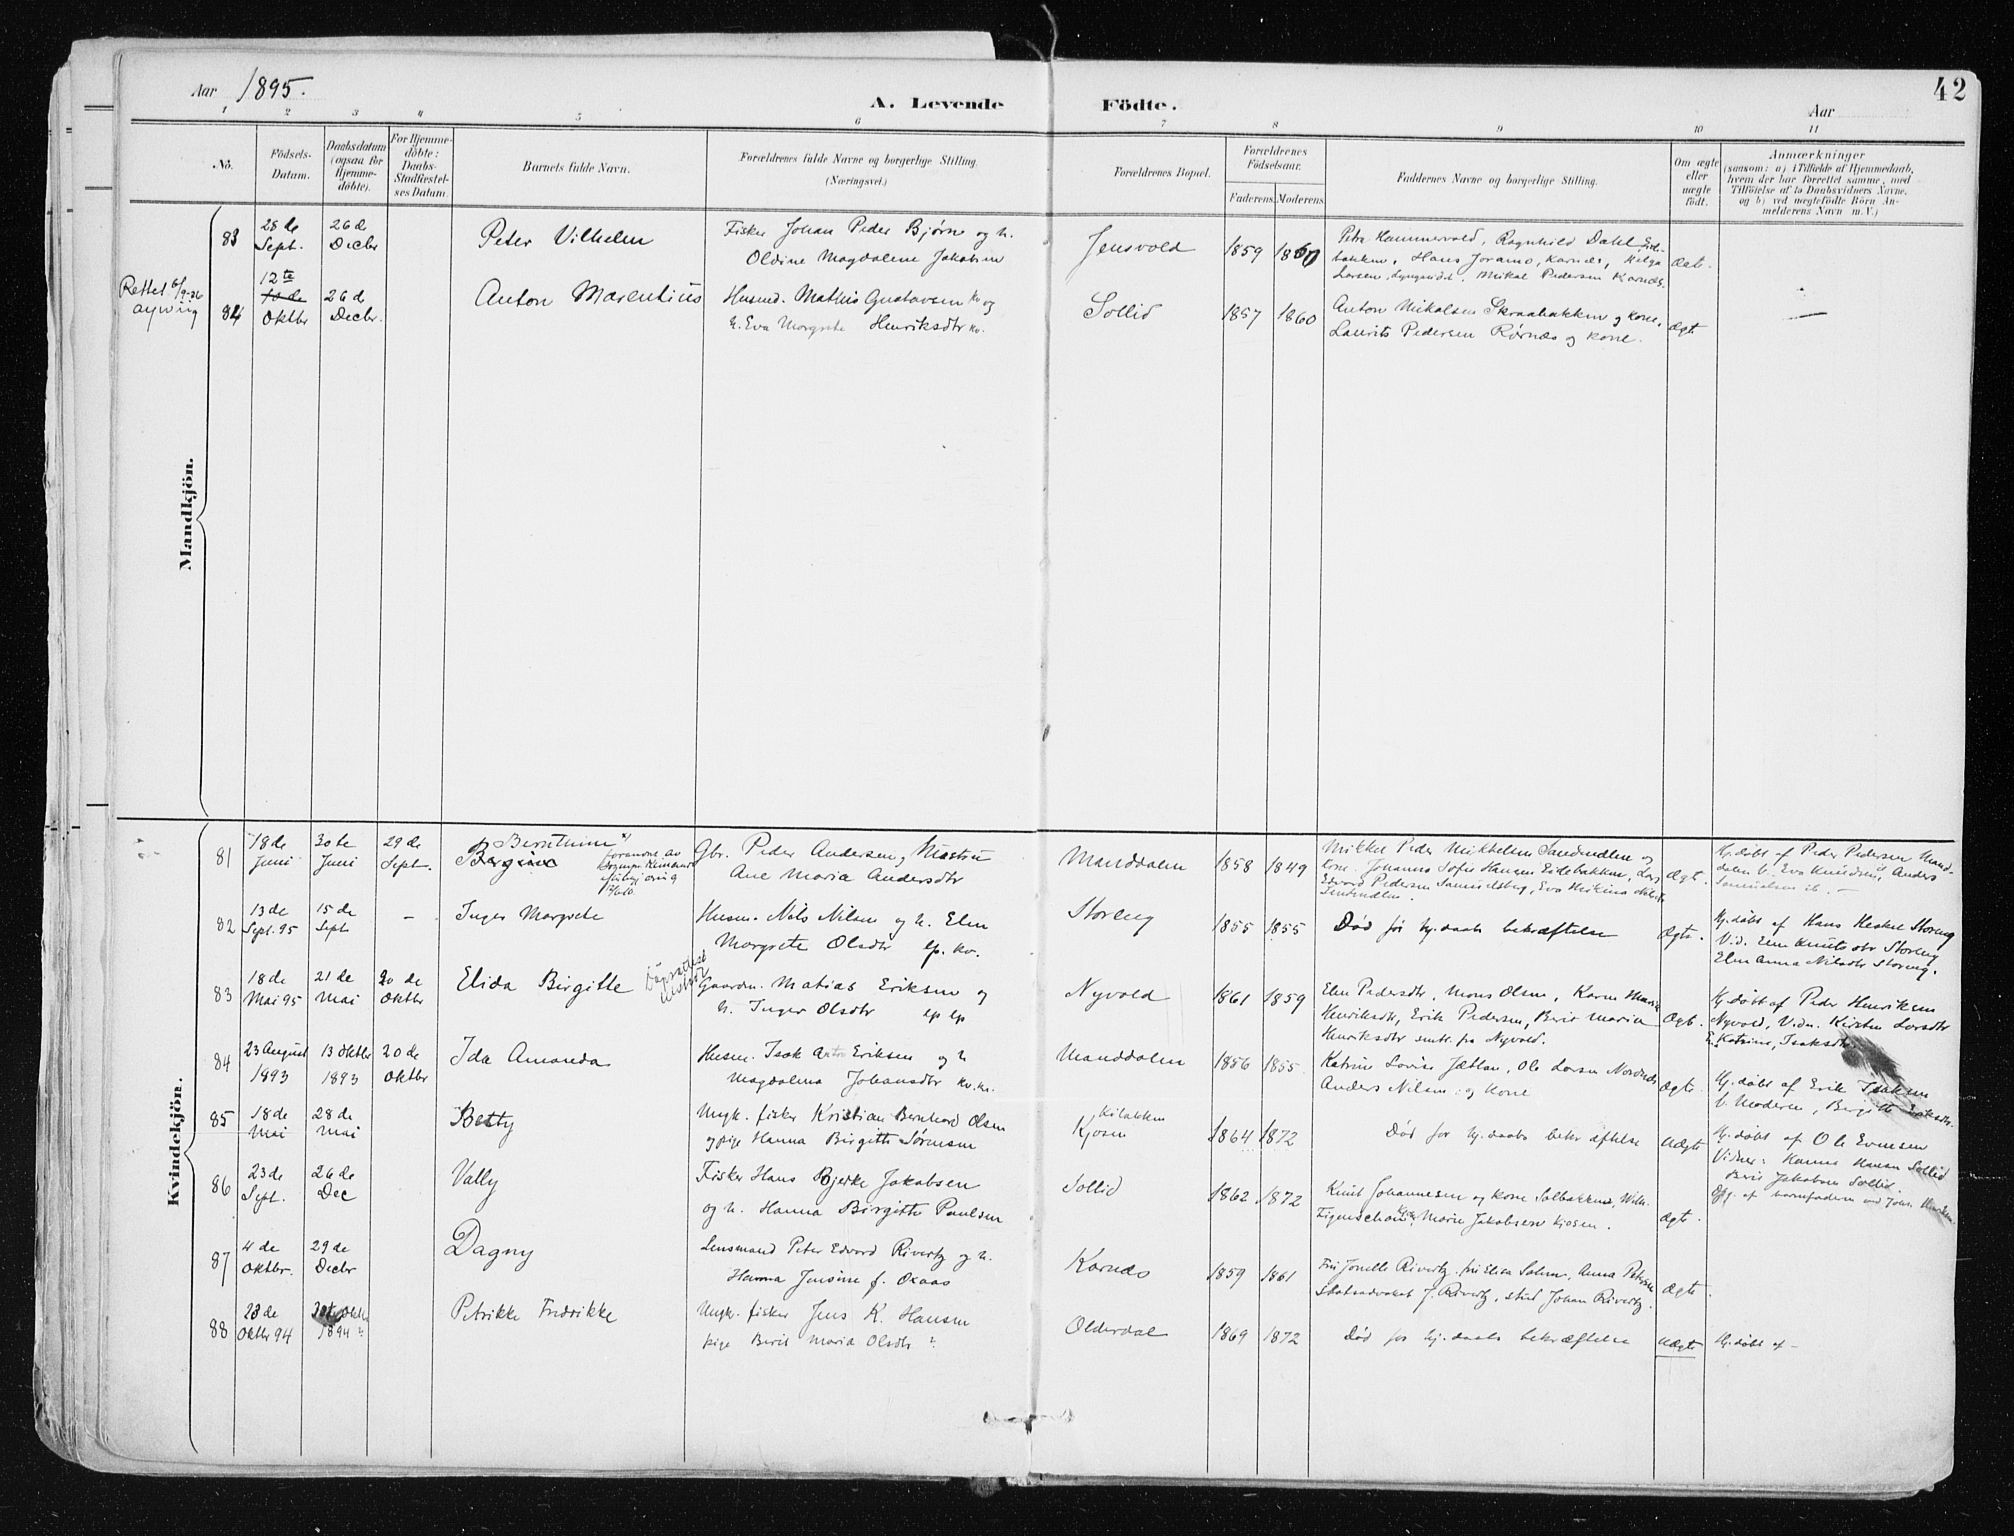 Aar 1895.
A. Levende Födte.
Aar
42
1 2 3 4 5 6 7 8 9 10 11
No.
Födsels-Datum.
Daabsdatum (ogsaa for Hjemme-döbte).
For Hjemme-döbte: Daabs-Stadfæstel-ses Datum.
Barnets fulde Navn.
Forældrenes fulde Navne og borgerlige Stilling. (Næringsvei.)
Forældrenes Bopæl.
Forældrenes Födselsaar.
Faderens Moderens
Faddernes Navne og borgerlige Stilling.
Om ægte eller uægte födt.
Anmærkninger
(saasom: a) i Tilfælde af Hjemmedaab,
hvem der har forrettet samme, med
Tilföielse af to Daabsvidners Navne,
og b) ved uægtefödte Börn An-
melderens Navn m. V.)
Mandkjön.
83 28 de Sept. 26 de Decbr Peter Vilhelm Fisker Johan Peder Bjørn og h. Jensvold 1859 1860 Petra Hammervold, Ragnhild Dahl, ægt.
Oldine Magdalene Jakobsen bakken, Hans Joramo, Karnes, Helga
Larsen, Lyngseidet, Mikal Pedersen Karnes.
Rettet 6/9-26
84 12te 10 de Oktbr 26 d Decbr. Anton Marentius Husmd. Mathis Gustavsen kv og Sollid 1857 1860 Anton Nikolsen Skraabakken og kone, Ægt —
h. Eva Margrete Henriksdtr kv. Laurits Pedersen Rørnæs og kone.
Kvindekjön.
81 18 de Juni 30 te Juni 29 de Sept. Berntine Bergine Gbr. Peder Andersen, Manddalen 1858 1849 Mikkel Peder Mikkelsen Samuelsberg Ægt. Hj.døbt af Peder Pedersen Mand-
Ane Maria Andersdtr kone. Johanna Sofie Hansen Eidebakken, Lars dalen V. Eva Knudsen, Anders
Edvard Pedersen Samuelsberg, Eva Samuelsen ib. —
82 13 de Sept. 95 15 de Sept — Inger Margrete Husm. Nils Nilsen og h. Elen Storeng 1855 1855 Død før hj.daabs bekræftelse Ægte. Hj.døbt af Hans Storeng
Margrete Olsdtr lp. kv. Vid. Elen Knutsdtr Storeng
Elen Anna Nilsdtr Storeng.
83 18 de Mai 95 21 de Mai 20 de Oktbr Elida Birgitte Gaardm. Matias Eriksen og Nyvold 1861 1859 Elen Pedersdtr, Mons Olsen, Karen Maria Ægt. Hj.døbt af Peder Henriksen
h. Inger Olsdtr lp lp Henriksdtr, Erik Pedersen, Berit Maria Nyvold, Vidn. Kirsten Larsdtr
Henriksdtr smtl. fra Nyvold. E. Katrine, Isaksdtr.
84 23 August 1893 13 oktbr 1893 20 de Oktbr Ida Amanda Husm. Isak Eriksen og h Manddalen 1856 1855. Katrine Lovise Jættan, Ole Larsen Nordnes Ægte. Hj.døbt af Erik Isaksen
Magdalena Johansdtr kv. kv. Anders Nilsen og kone V. Moderen, Birgitte Eriksdtr.
85 18 de Mai 28 de Mai Betty Ungk. fisker Kristian Bernhard Olsen Kjosen 1864 1872 Død før hj.daabs bekræftelse uægte Hj.døbt af Ole Evensen
og pige Hanna Birgitte Sørensen Vidner: Hanna Hansen Sollid
Berit Jakobsen Sollid
Opg. af barnefaderen ved Johs.
86 23 de Sept. 26 de Dec Vally Fisker Hans Bjerke Jakobsen Sollid 1862 1872 Knut Johannesen og kone Solbakken, Wilh. Ægte.
og h. Hanna Birgitte Paulsen Figenschou, Marie Jakobsen Kjosen.
87 4 de Oktbr. 29 de Decbr Dagny Lensmand Peter Edvard Rivertz og h. Karnes 1859 1861 Fru Jonette Rivertz, fru Elisa Solem, Anna Petersen Ægte.
Hanna Jensine f. Oxaas Statsadvokat J Rivertz, stud Johan Rivertz.
88 23 de Oktbr 94 1894? Petrikke Fredrikke Ungk. fisker Jens K. Hansen Olderdal 1869 1872 Død før hj.daabs bekræftelse uægte Hj.døbt af —
pige Berit Maria Olsdtr ?